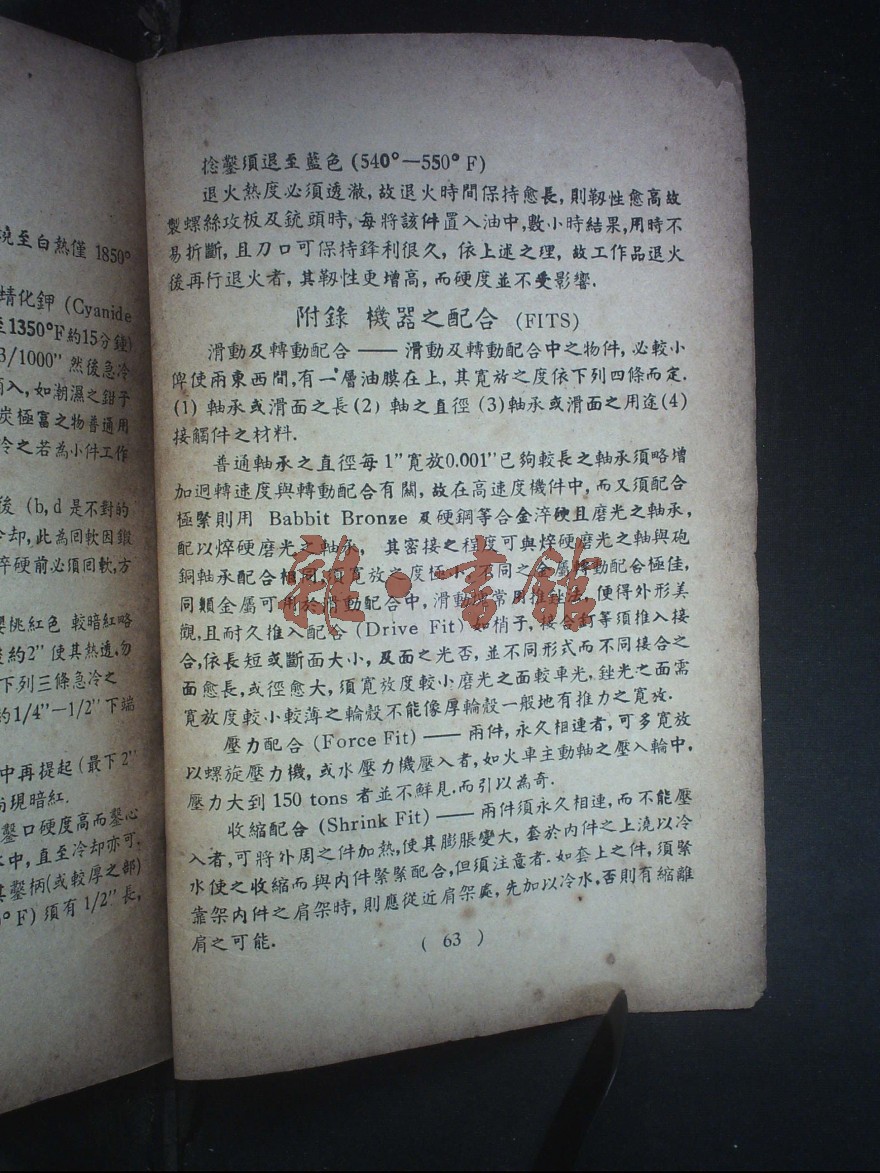 燒至白熱僅 1850°
化鉀 (Cyanide
至1350°F約15分鐘)
3/1000" 然後急冷
而入，如潮濕之鉗子
炭極富之物普通用
冷之若為小件工作
後 (b,d 是不對的
冷却，此為回軟因鍛
硬前必須回軟，方
櫻桃紅色 較暗紅略
約2" 使其熱透，勿
下列三條急冷之
約1/4"—1/2" 下端
中再提起 (最下2"
現暗紅.
鑿口硬度高而鑿心
水中，直至冷却亦可.
其鑿柄(或較厚之部)
° F) 須有 1/2" 長，
捻鑿須退至藍色 (540°—550° F)
退火熱度必須透澈，故退火時間保持愈長，則靱性愈高故
製螺絲攻板及銃頭時，每將該件置入油中，數小時結果，用時不
易折斷，且刀口可保持鋒利很久，依上述之理，故工作品退火
後再行退火者，其靱性更增高，而硬度並不受影響.
附錄 機器之配合 (FITS)
滑動及轉動配合 —— 滑動及轉動配合中之物件，必較小
俾使兩東西間，有一層油膜在上，其寬放之度依下列四條而定.
(1) 軸承或滑面之長(2) 軸之直徑 (3)軸承或滑面之用途(4)
接觸件之材料.
普通軸承之直徑每 1" 寬放0.001" 已夠較長之軸承須略增
加迴轉速度與轉動配合有關，故在高速度機件中，而又須配合
極緊則用 Babbit Bronze 及硬鋼等合金淬硬且磨光之軸承，
配以焠硬磨光之軸承，其密接之程度可與焠硬磨光之軸與砲
銅軸承配合相同，須寬放之度極小，不同之金屬轉動配合極佳，
同類金屬可用於滑動配合中，滑動塊常用推鉎法，使得外形美
觀，且耐久推入配合 (Drive Fit) 如梢子，接合釘等須推入接
合，依長短或斷面大小，及面之光否，並不同形式而不同接合之
面愈長，或徑愈大，須寬放度較小磨光之面較車光，銼光之面需
寬放度較小較薄之輪殼不能像厚輪殼一般地有推力之寬放.
壓力配合 (Force Fit) —— 兩件，永久相連者，可多寬放
以螺旋壓力機，或水壓力機壓入者，如火車主動軸之壓入輪中，
壓力大到 150 tons 者並不鮮見，而引以為奇.
收縮配合 (Shrink Fit) —— 兩件須永久相連，而不能壓
入者，可將外周之件加熱，使其膨脹變大，套於內件之上澆以冷
水使之收縮而與內件緊緊配合，但須注意者. 如套上之件，須緊
靠架內件之肩架時，則應從近肩架處，先加以冷水，否則有縮離
肩之可能.
( 63 )
雜·書館